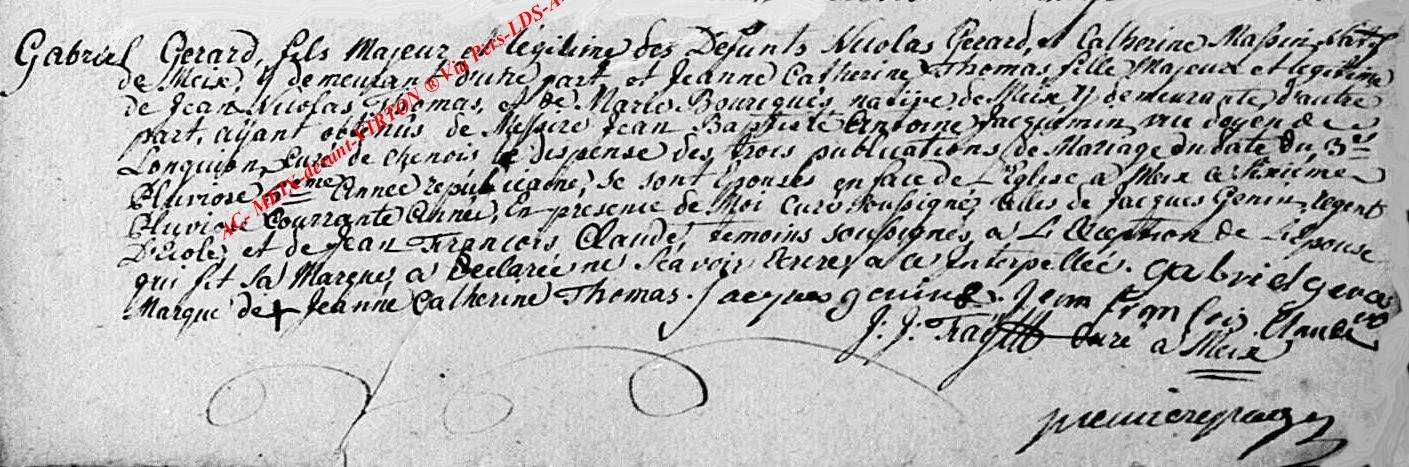 Gabriel Gerard, fils Majeur et légitime des Defunts Nicolas Gerard, et Catherine Massin, Natif
de Meix, y demeurant d'une part, et Jeanne Catherine Thomas fille Majeure et legitime
de Jean Nicolas Thomas, et de Marie Bourguès native de Meix y demeurante d'autre
part, ayant obtenus de Messire Jean Baptiste Antoine Jacquemin doyen de
Longuion, Curé de chenois dispense des trois publications de Mariage du date du 3
Pluviose Année republicaine, se sont Epousés en face de L'Eglise a Meix
Pluviose Courrante Année, En presence de Moi Curé soussigné, de Jacques Genin, regent
D'Ecole, et de Jean François Claude, temoins soussignés, a L'Exception de L'epouse
qui fit sa Marque, a declarée ne Scavoir Ecrire, a ce interpellée. gabriel gerard
Marque de + Jeanne Catherine Thomas. jacques genin. jean fran cois Claude
J. J. Curé a Meix
premiere page
AC- MEIX-devant-VIRTON ® Via Pers-LDS-A